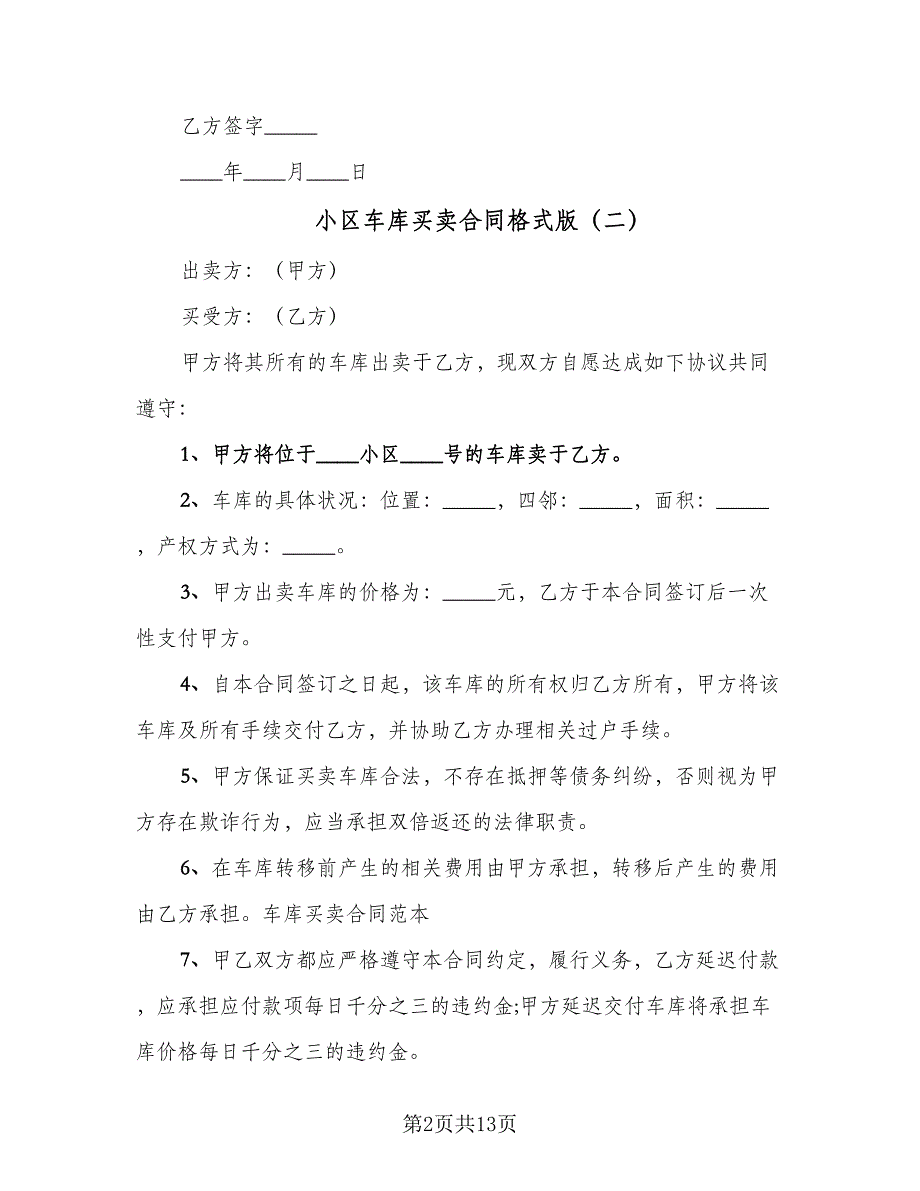 乙方签字_____
____年____月____日
小区车库买卖合同格式版（二）
出卖方：（甲方）
买受方：（乙方）
甲方将其所有的车库出卖于乙方，现双方自愿达成如下协议共同
遵守：
1、甲方将位于____小区____号的车库卖于乙方。
2、车库的具体状况：位置：_____，四邻：_____，面积：_____
，产权方式为：_____。
3、甲方出卖车库的价格为：_____元，乙方于本合同签订后一次
性支付甲方。
4、自本合同签订之日起，该车库的所有权归乙方所有，甲方将该
车库及所有手续交付乙方，并协助乙方办理相关过户手续。
5、甲方保证买卖车库合法，不存在抵押等债务纠纷，否则视为甲
方存在欺诈行为，应当承担双倍返还的法律职责。
6、在车库转移前产生的相关费用由甲方承担，转移后产生的费用
由乙方承担。车库买卖合同范本
7、甲乙双方都应严格遵守本合同约定，履行义务，乙方延迟付款
，应承担应付款项每日千分之三的违约金;甲方延迟交付车库将承担车
库价格每日千分之三的违约金。
第2页共13页